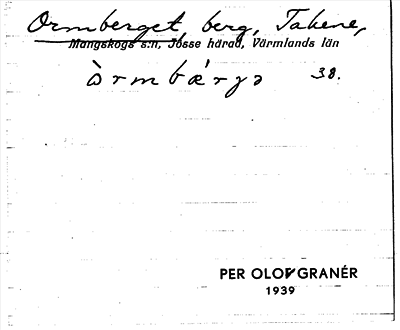 Ormberget, berg, Takene,
Mangskogs s:n, Jösse härad, Värmlands län
òrmbǽrjə 38.
PER OLOF GRANÉR
1939